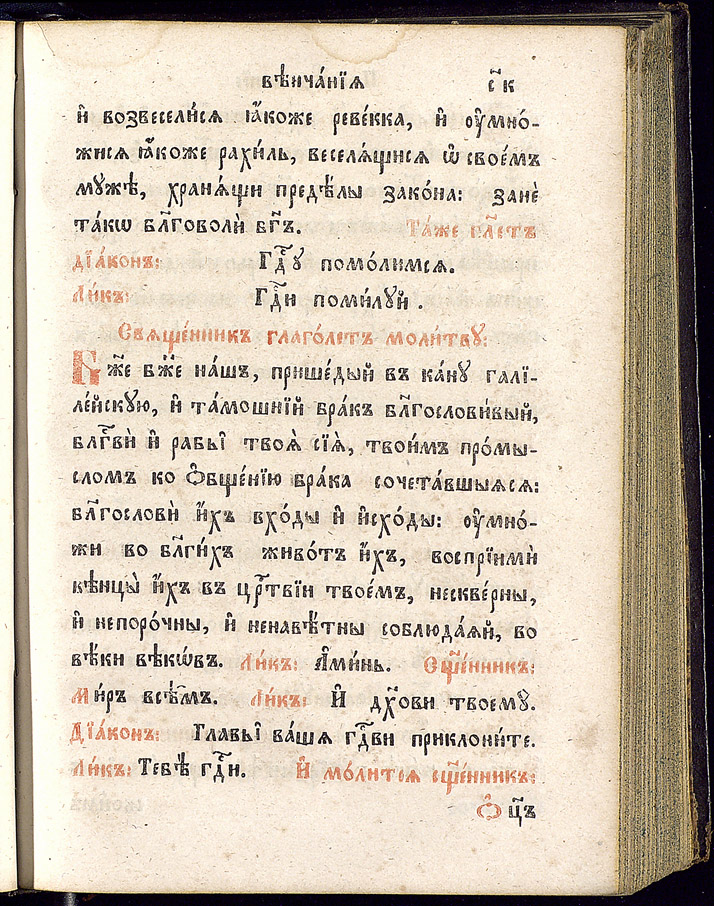 вѣнча́нїѧ    с҃к
и҆ возвесели́сѧ ꙗ҆́коже реве́кка, и҆ ᲂу҆мно́-
жисѧ ꙗ҆́коже рахи́ль, веселѧ́щисѧ ѡ҆ свое́мъ
мꙋ́жѣ, хранѧ́щи предѣ́лы зако́на: занѐ
та́кѡ бл҃говолѝ бг҃ъ. Та́же гл҃етъ
дїа́конъ: Гдⷭ҇ꙋ помо́лимсѧ.
Ли́къ: Гдⷭ҇и поми́лꙋй.
Свѧще́нникъ глаго́летъ моли́твꙋ:
Бж҃е бж҃е на́шъ, прише́дый въ ка́нꙋ галї-
ле́йскꙋю, и҆ та́мошнїй бра́къ бл҃гослови́вый,
бл҃гⷭ҇вѝ и҆ рабы̑ твоѧ̑ сїѧ̑, твои́мъ про́мы-
сломъ ко ѻ҆бще́нїю бра́ка сочета́вшыѧсѧ:
бл҃гословѝ и҆́хъ вхо́ды и҆ и҆схо́ды: ᲂу҆мно́-
жи во бл҃ги́хъ живо́тъ и҆́хъ, воспрїимѝ
вѣнцы̀ и҆́хъ въ црⷭ҇твїи твое́мъ, нескве́рны,
и҆ непоро́чны, и҆ ненавѣ́тны соблюда́ѧй, во
вѣ́ки вѣкѡ́въ. Ли́къ: А҆ми́нь. Сщ҃е́нникъ:
Ми́ръ всѣ̑мъ. Ли́къ: И҆ дх҃ови твоемꙋ̀.
Дїа́конъ: Главы̑ ва́шѧ гдⷭ҇ви приклони́те.
Ли́къ: Тебѣ̀ гдⷭ҇и. И҆ мо́литсѧ сщ҃е́нникъ:
Ѻ҆ц҃ъ